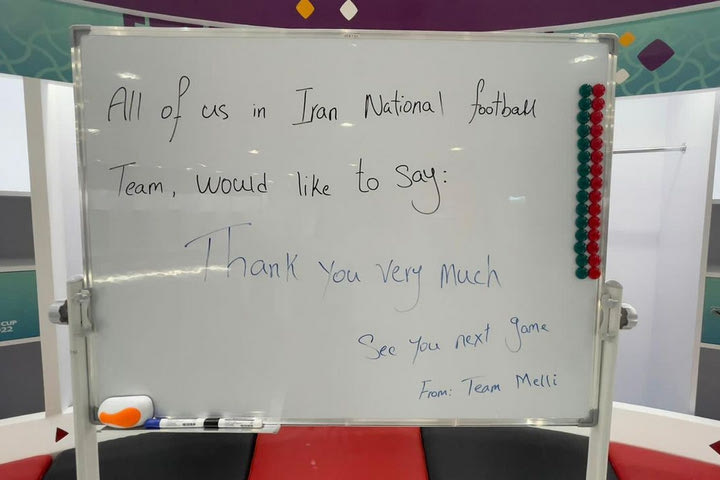 All of us in Iran National football
Team, would like to say:
Thank you very much
See you next game
From: Team Melli
CUP
22